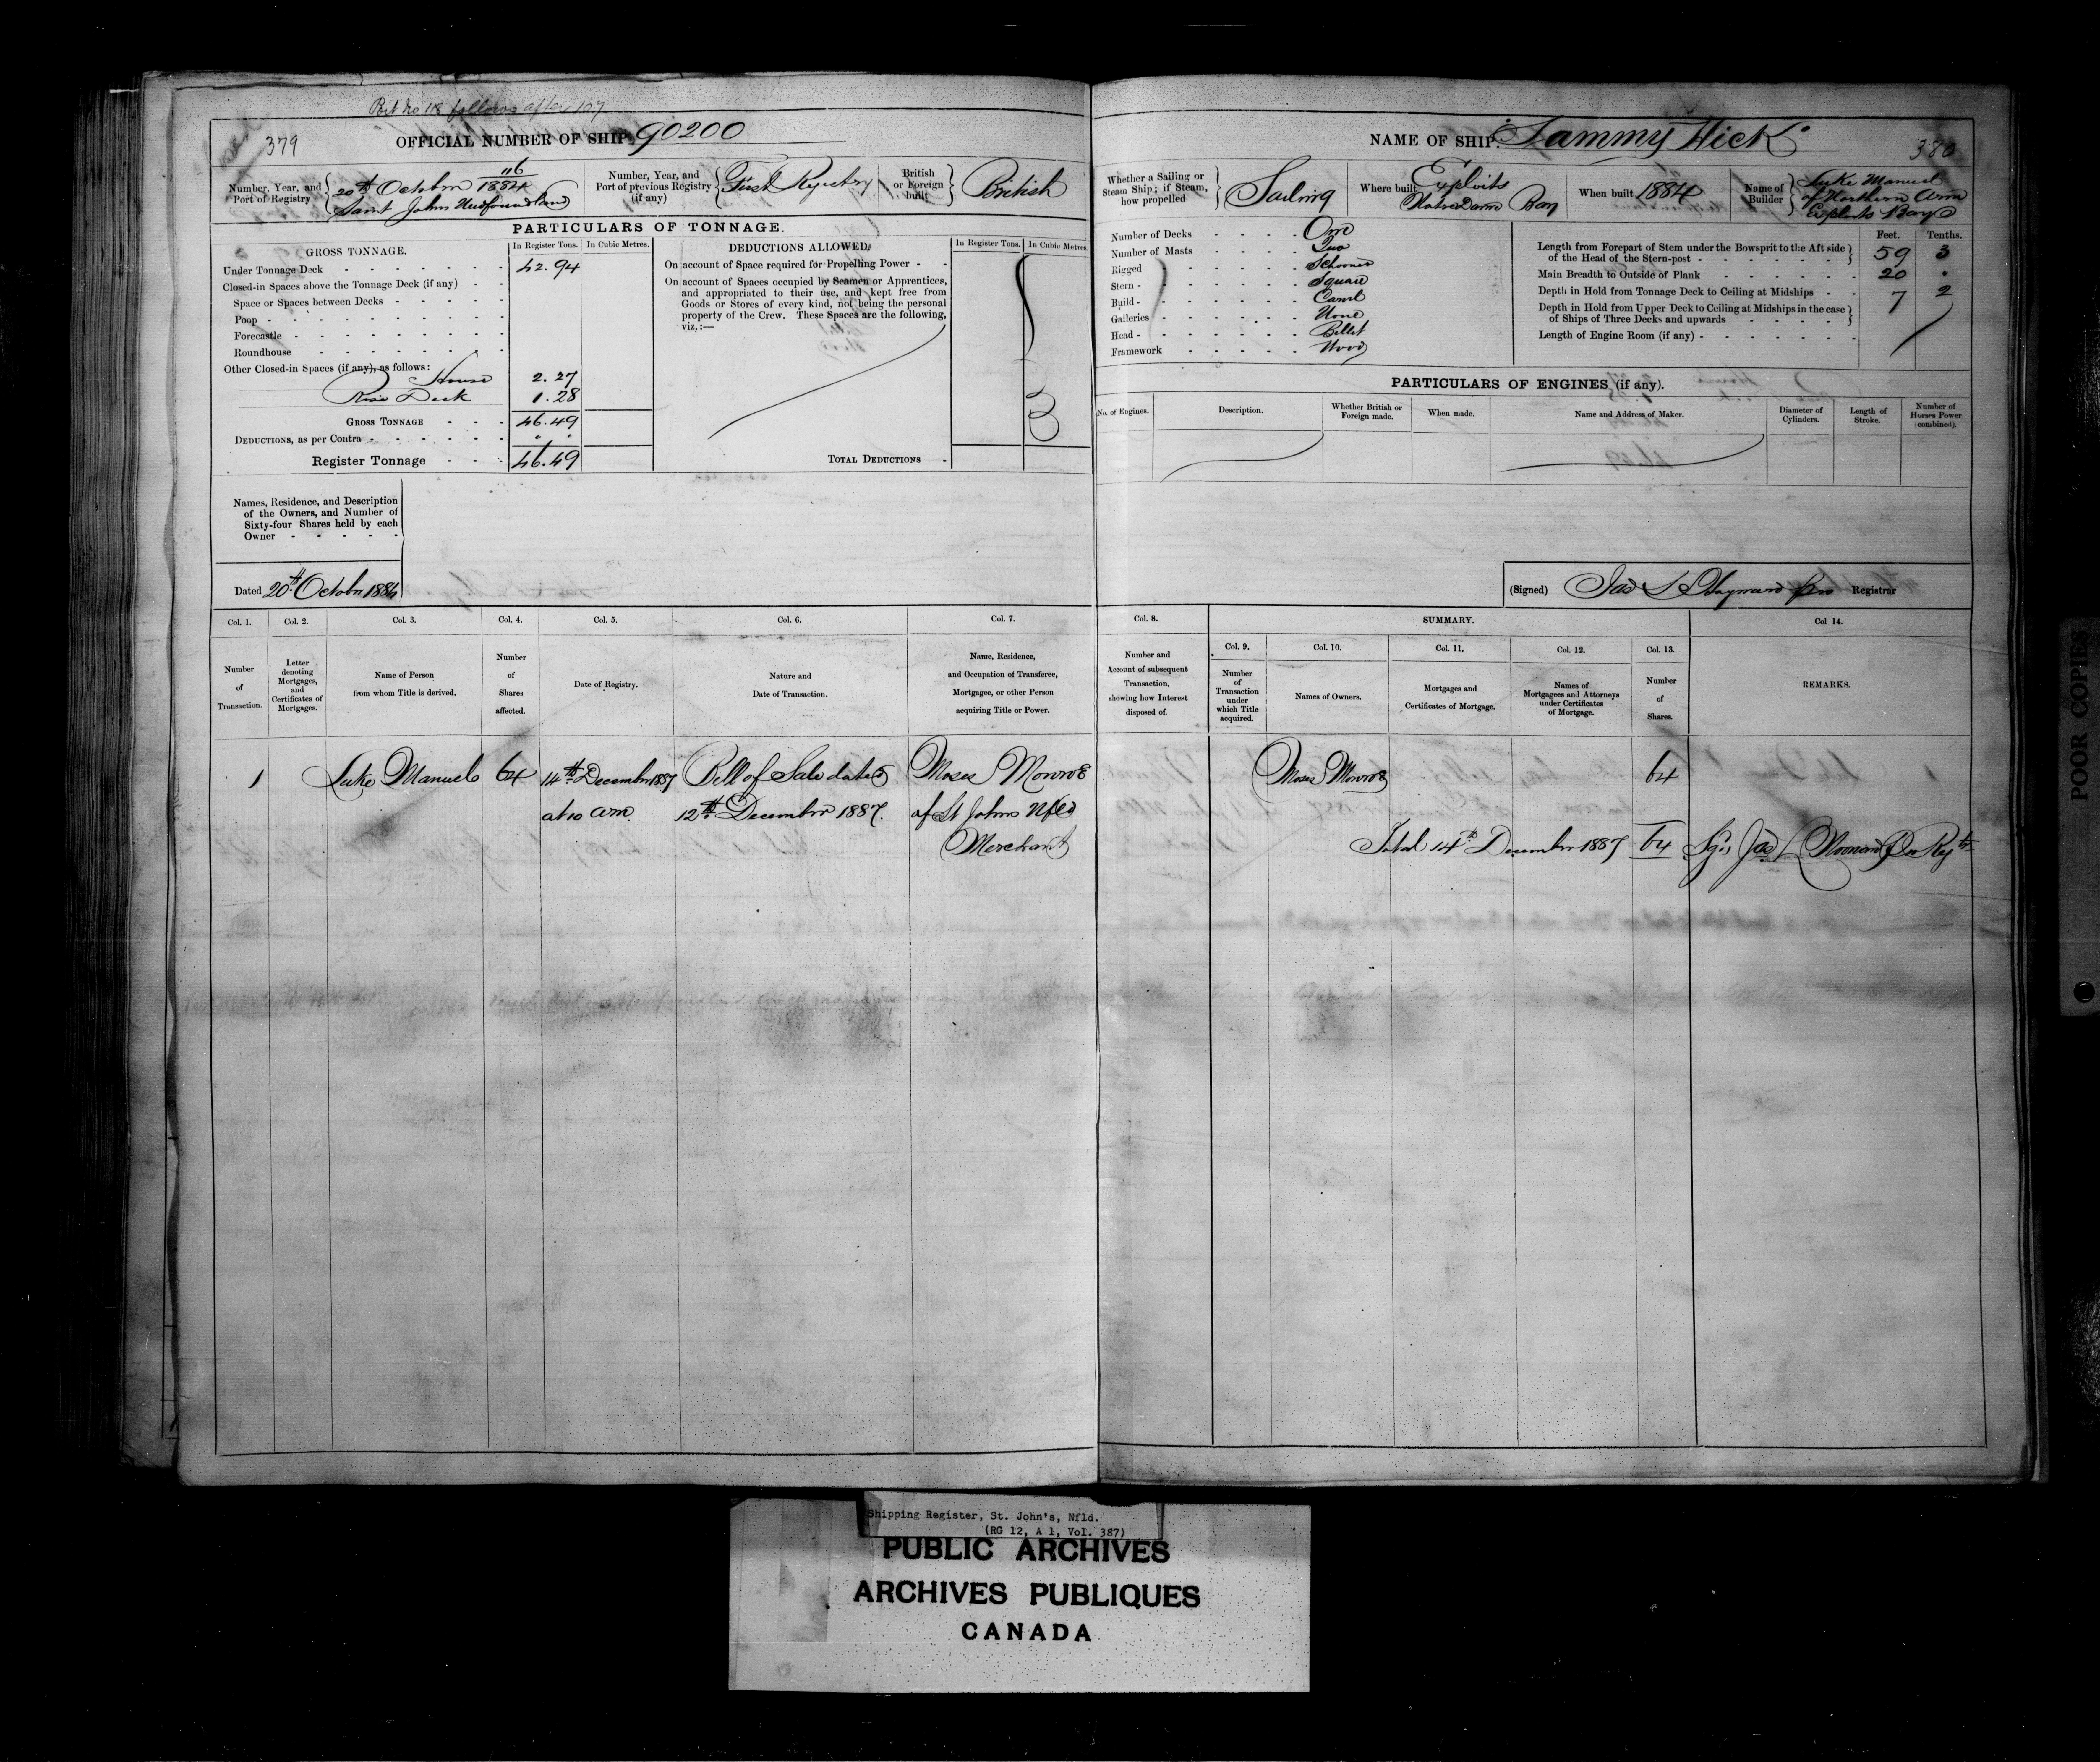 Port No 118 follows after 107
379
OFFICIAL NUMBER OF SHIP 90200
Number, Year, and Port of Registry
116
20th October 1884
Saint Johns Newfoundland
Number, Year, and Port of previous Registry (if any)
First Registry
British or Foreign built
British
PARTICULARS OF TONNAGE.
GROSS TONNAGE.
In Register Tons.
In Cubic Metres.
Under Tonnage Deck 42.94
Closed-in Spaces above the Tonnage Deck (if any)
Space or Spaces between Decks
Poop
Forecastle
Roundhouse
Other Closed-in Spaces (if any), as follows:
House 2.27
Deck 1.28
GROSS TONNAGE 46.49
DEDUCTIONS, as per Contra " "
Register Tonnage 46.49
DEDUCTIONS ALLOWED.
In Register Tons.
In Cubic Metres.
On account of Space required for Propelling Power
On account of Spaces occupied by Seamen or Apprentices,
and appropriated to their use, and kept free from
Goods or Stores of every kind, not being the personal
property of the Crew. These Spaces are the following,
viz.:—
TOTAL DEDUCTIONS
Names, Residence, and Description
of the Owners, and Number of
Sixty-four Shares held by each
Owner
Dated 20th October 1884
NAME OF SHIP. Sammy Hick
380
Whether a Sailing or Steam Ship; if Steam, how propelled
Sailing
Where built
Exploits
Notre Dame Bay
When built 1884
Name of Builder
Luke Manuel
of Northern Arm
Exploits Bay
Number of Decks One
Number of Masts Two
Rigged Schooner
Stern Square
Build Carvel
Galleries None
Head Billet
Framework Wood
Feet. Tenths.
Length from Forepart of Stem under the Bowsprit to the Aft side
of the Head of the Stern-post 59 3
Main Breadth to Outside of Plank 20 .
Depth in Hold from Tonnage Deck to Ceiling at Midships 7 2
Depth in Hold from Upper Deck to Ceiling at Midships in the case
of Ships of Three Decks and upwards
Length of Engine Room (if any)
PARTICULARS OF ENGINES (if any).
No. of Engines.
Description.
Whether British or Foreign made.
When made.
Name and Address of Maker.
Diameter of Cylinders.
Length of Stroke.
Number of Horses Power (combined).
(Signed) Registrar
Col. 1. Col. 2. Col. 3. Col. 4. Col. 5. Col. 6. Col. 7.
Number of Transaction.
Letter denoting Mortgages, and Certificates of Mortgages.
Name of Person from whom Title is derived.
Number of Shares affected.
Date of Registry.
Nature and Date of Transaction.
Name, Residence, and Occupation of Transferee, Mortgagee, or other Person acquiring Title or Power.
Col. 8.
Number and Account of subsequent Transaction, showing how Interest disposed of.
SUMMARY.
Col. 9. Col. 10. Col. 11. Col. 12. Col. 13.
Number of Transaction under which Title acquired.
Names of Owners.
Mortgages and Certificates of Mortgage.
Names of Mortgagees and Attorneys under Certificates of Mortgage.
Number of Shares.
Col 14.
REMARKS.
1 Luke Manuel 64 14th December 1887 Bill of Sale dated Moses Monroe
at 10 am 12th December 1887. of St Johns Nfld
Merchant
Moses Monroe 64
Total 14th December 1887 64
POOR COPIES
Shipping Register, St. John's, Nfld.
(RG 12, A 1, Vol. 387)
PUBLIC ARCHIVES
ARCHIVES PUBLIQUES
CANADA